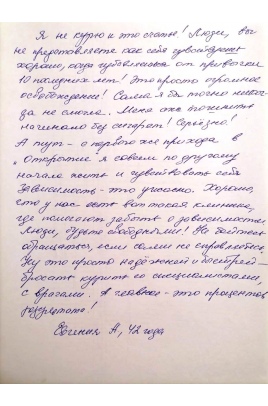 Я не курю и это счастье! Люди, вы
не представляете как себя чувствуешь
хорошо, когда избавишься от привычки
10 последних лет! Это просто огромное
освобождение! Сама я бы точно никог-
да не смогла. Меня аж
начинало без сигарет! Серьёзно!
А тут - с первого же прихода в
"Открытие" я совсем по другому
начала жить и чувствовать себя
Зависимость - это ужасно. Хорошо,
что у нас есть вот такая клиника,
где помогают забыть о зависимости.
Люди, будьте свободными! Не бойтесь
обращаться, если сами не справляетесь
Ну это просто надёжней и быстрей -
бросать курить со специалистами,
с врачами. А главное - это процентов
результата!
Евгения А, 42 года